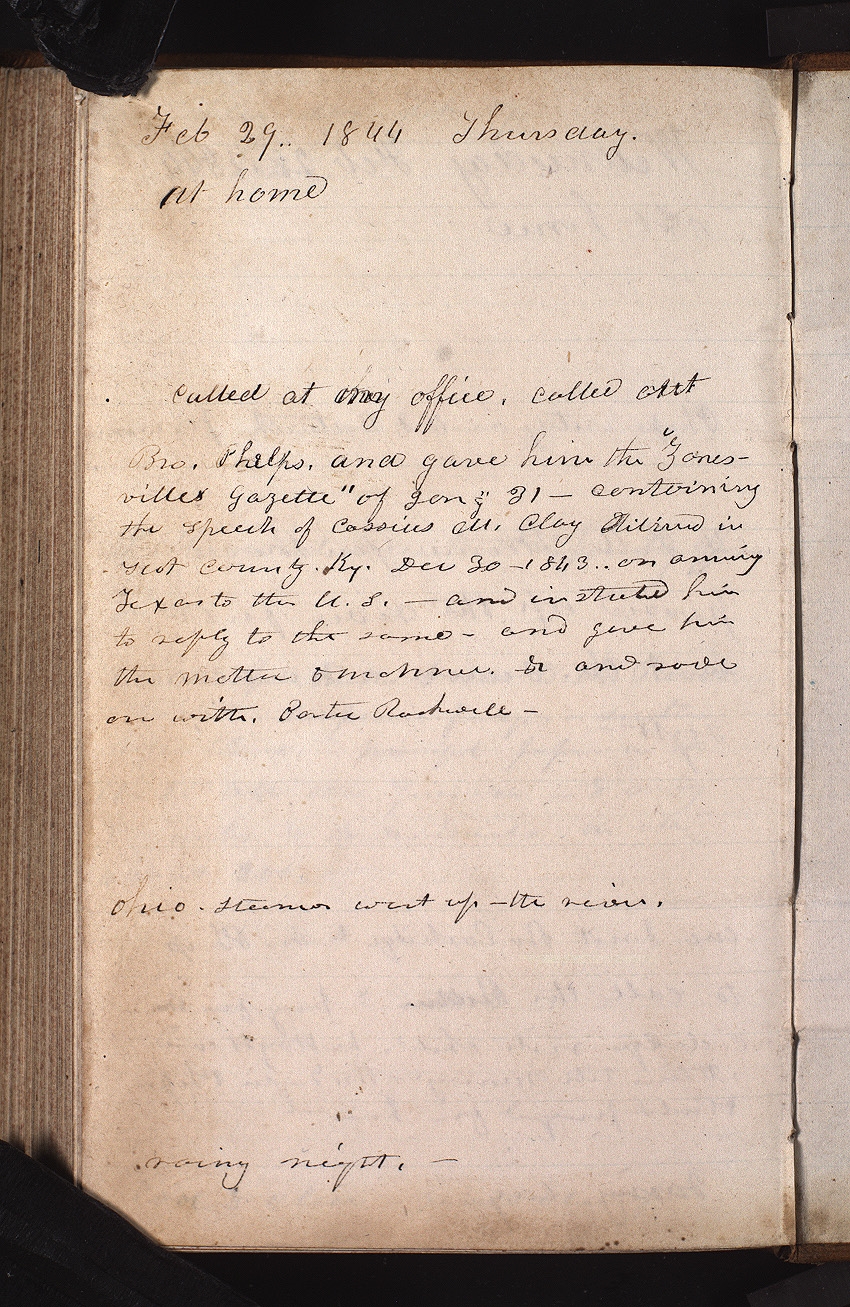 Feb 29.. 1844 Thursday.
at home
called at my office, called at
Bro. Phelps. and gave him the "Zanes-
villes Gazette" of Jany 31 — containing
the speech of Cassius M. Clay dilivred in
scot county. Ky. Dec 30 - 1843.. on annxing
Texas to the U. S. — and instructed him
to reply to the same - and gave him
the matter & mannr. &c and rode
on with. Porter Rockwell —
ohio. steamer went up - the river.
rainy night. —